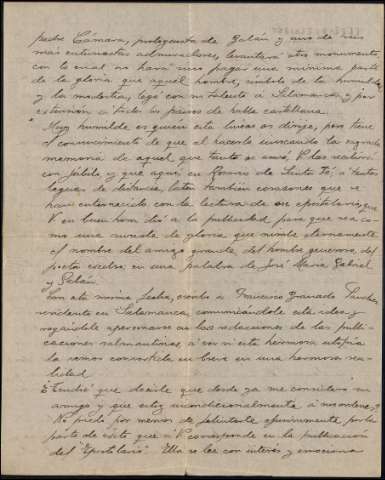 padre Cámara, protagonista de Galán y uno de sus
más entusiastas admiradores, levantara otro monumento
con lo cual no hará mas pagar una mínima parte
de la gloria que aquel hombre, símbolo de la humildad
y la modestia, legó con su talento a Salamanca y por
extensión a todos los países de habla castellana.
Muy humilde es quien estas lineas os dirige, pero tiene
el convencimiento de que al hacerlo invocando la sagrada
memoria de aquel que tanto se amó, V. las recibirá
con júbilo y que aquí, en Rosario de Santa Fé, a tantas
leguas de distancia, laten también corazones que se
han enternecido con la lectura de ese epistolario, que
V. en buen hora dió a la publicidad para que sea co-
mo una aureola de gloria que nimbe eternamente
el nombre del amigo grande, del hombre generoso, del
poeta excelso, en una palabra de José María Gabriel
y Galán.
Con esta misma fecha, escribo a Francisco Granado Sánchez
residente en Salamanca, comunicándole esta idea y
rogándole apersonarse en las redacciones de las publi-
caciones salmantinas, a ver si esta hermosa utopía
la vemos convertida en breve en una hermosa rea-
lidad.
Tendré que decirle que desde ya me considero su
amigo y que estoy incondicionalmente a sus ordenes?
No puedo por menos de felicitarle efusivamente por la
parte de éxito que a V. corresponde en la publicación
del "Epistolario". Ella se lee con interés y emociona